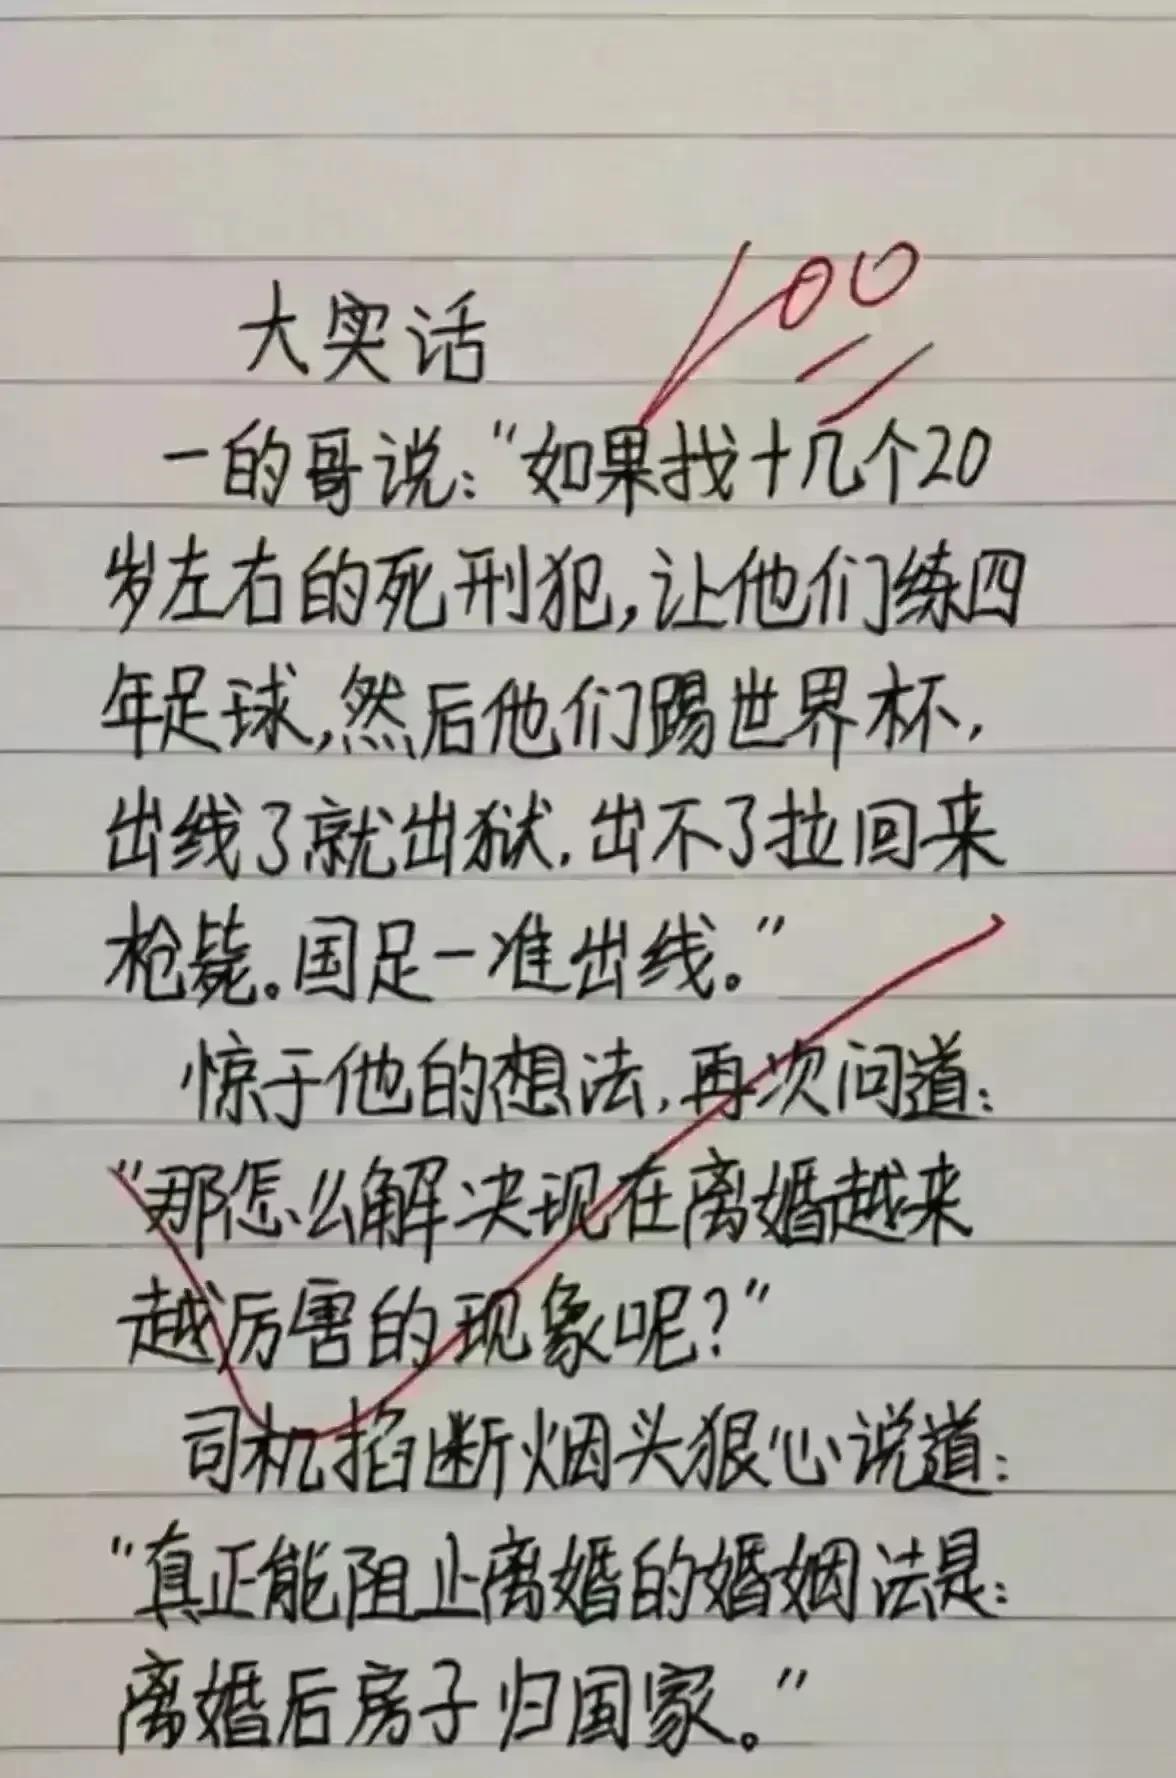 大实话
100
一的哥说:“如果找十几个20
岁左右的死刑犯,让他们练四
年足球,然后他们踢世界杯,
出线了就出狱,出不了拉回来
枪毙。国足一准出线。”
惊于他的想法,再次问道:
“那怎么解决现在离婚越来
越厉害的现象呢?”
司机掐断烟头狠心说道:
“真正能阻止离婚的婚姻法是:
离婚后房子归国家。”